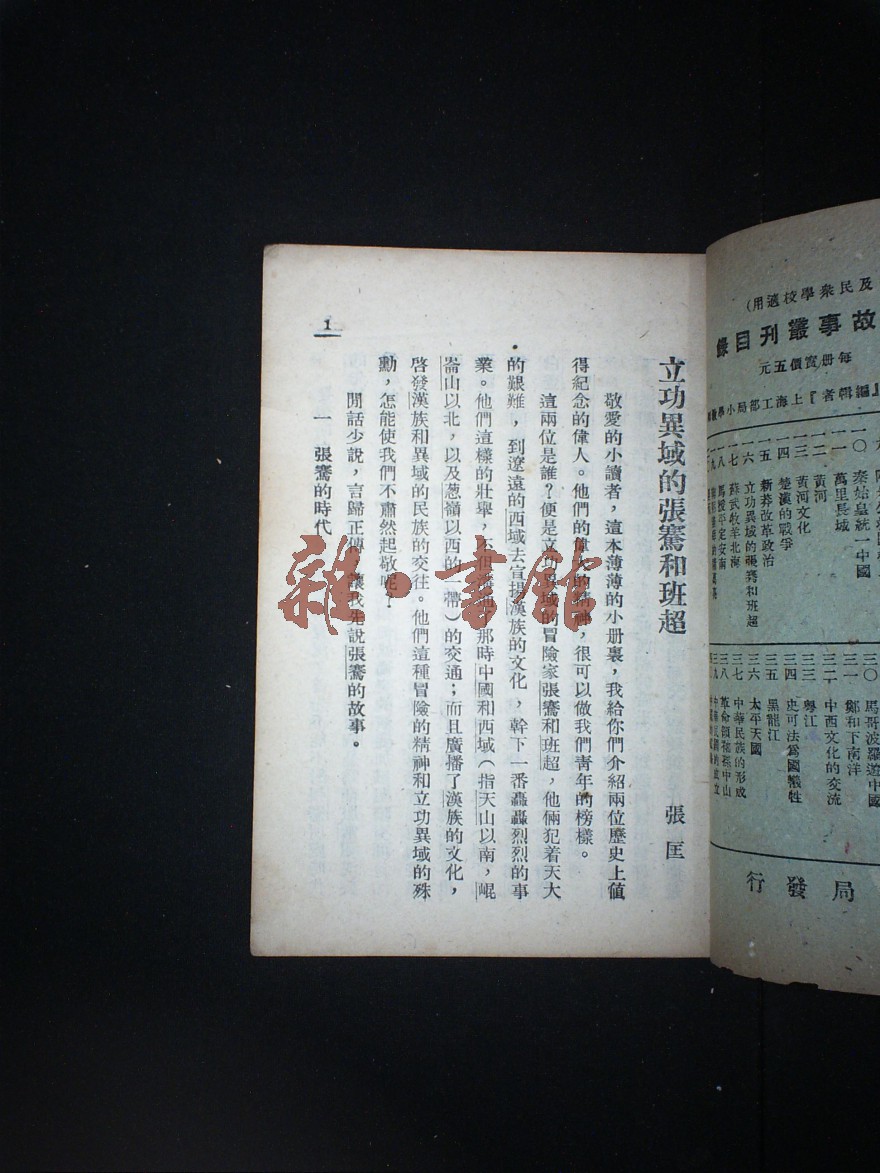 及民衆學校適用)
故事叢刊目錄
每册實價五元
編輯者『上海工部局小學
一〇 秦始皇統一中國
一一 萬里長城
一二 黃河
一三 黃河文化
一四 楚漢的戰爭
一五 新莽改革政治
一六 立功異域的張騫和班超
一七 蘇武牧羊北海
一八 馬援平定安南
三〇 馬哥波羅遊中國
三一 鄭和下南洋
三二 中西文化的交流
三三 粵江
三四 史可法爲國犧牲
三五 黑龍江
三六 太平天國
三七 中華民族的形成
三八 革命領袖孫中山
局發行
立功異域的張騫和班超
張匡
敬愛的小讀者,這本薄薄的小册裏,我給你們介紹兩位歷史上值
得紀念的偉人。他們的偉大的精神,很可以做我們青年的榜樣。
這兩位是誰?便是立功異域的冒險家張騫和班超,他倆犯着天大
的艱難,到遼遠的西域去宣揚漢族的文化,幹下一番轟轟烈烈的事
業。他們這樣的壯舉,不但溝通了那時中國和西域(指天山以南,崐
崙山以北,以及葱嶺以西的一帶)的交通;而且廣播了漢族的文化,
啓發漢族和異域的民族的交往。他們這種冒險的精神和立功異域的殊
勳,怎能使我們不肅然起敬呢?
閒話少說,言歸正傳,讓我先說張騫的故事。
一 張騫的時代
1
雜·書館